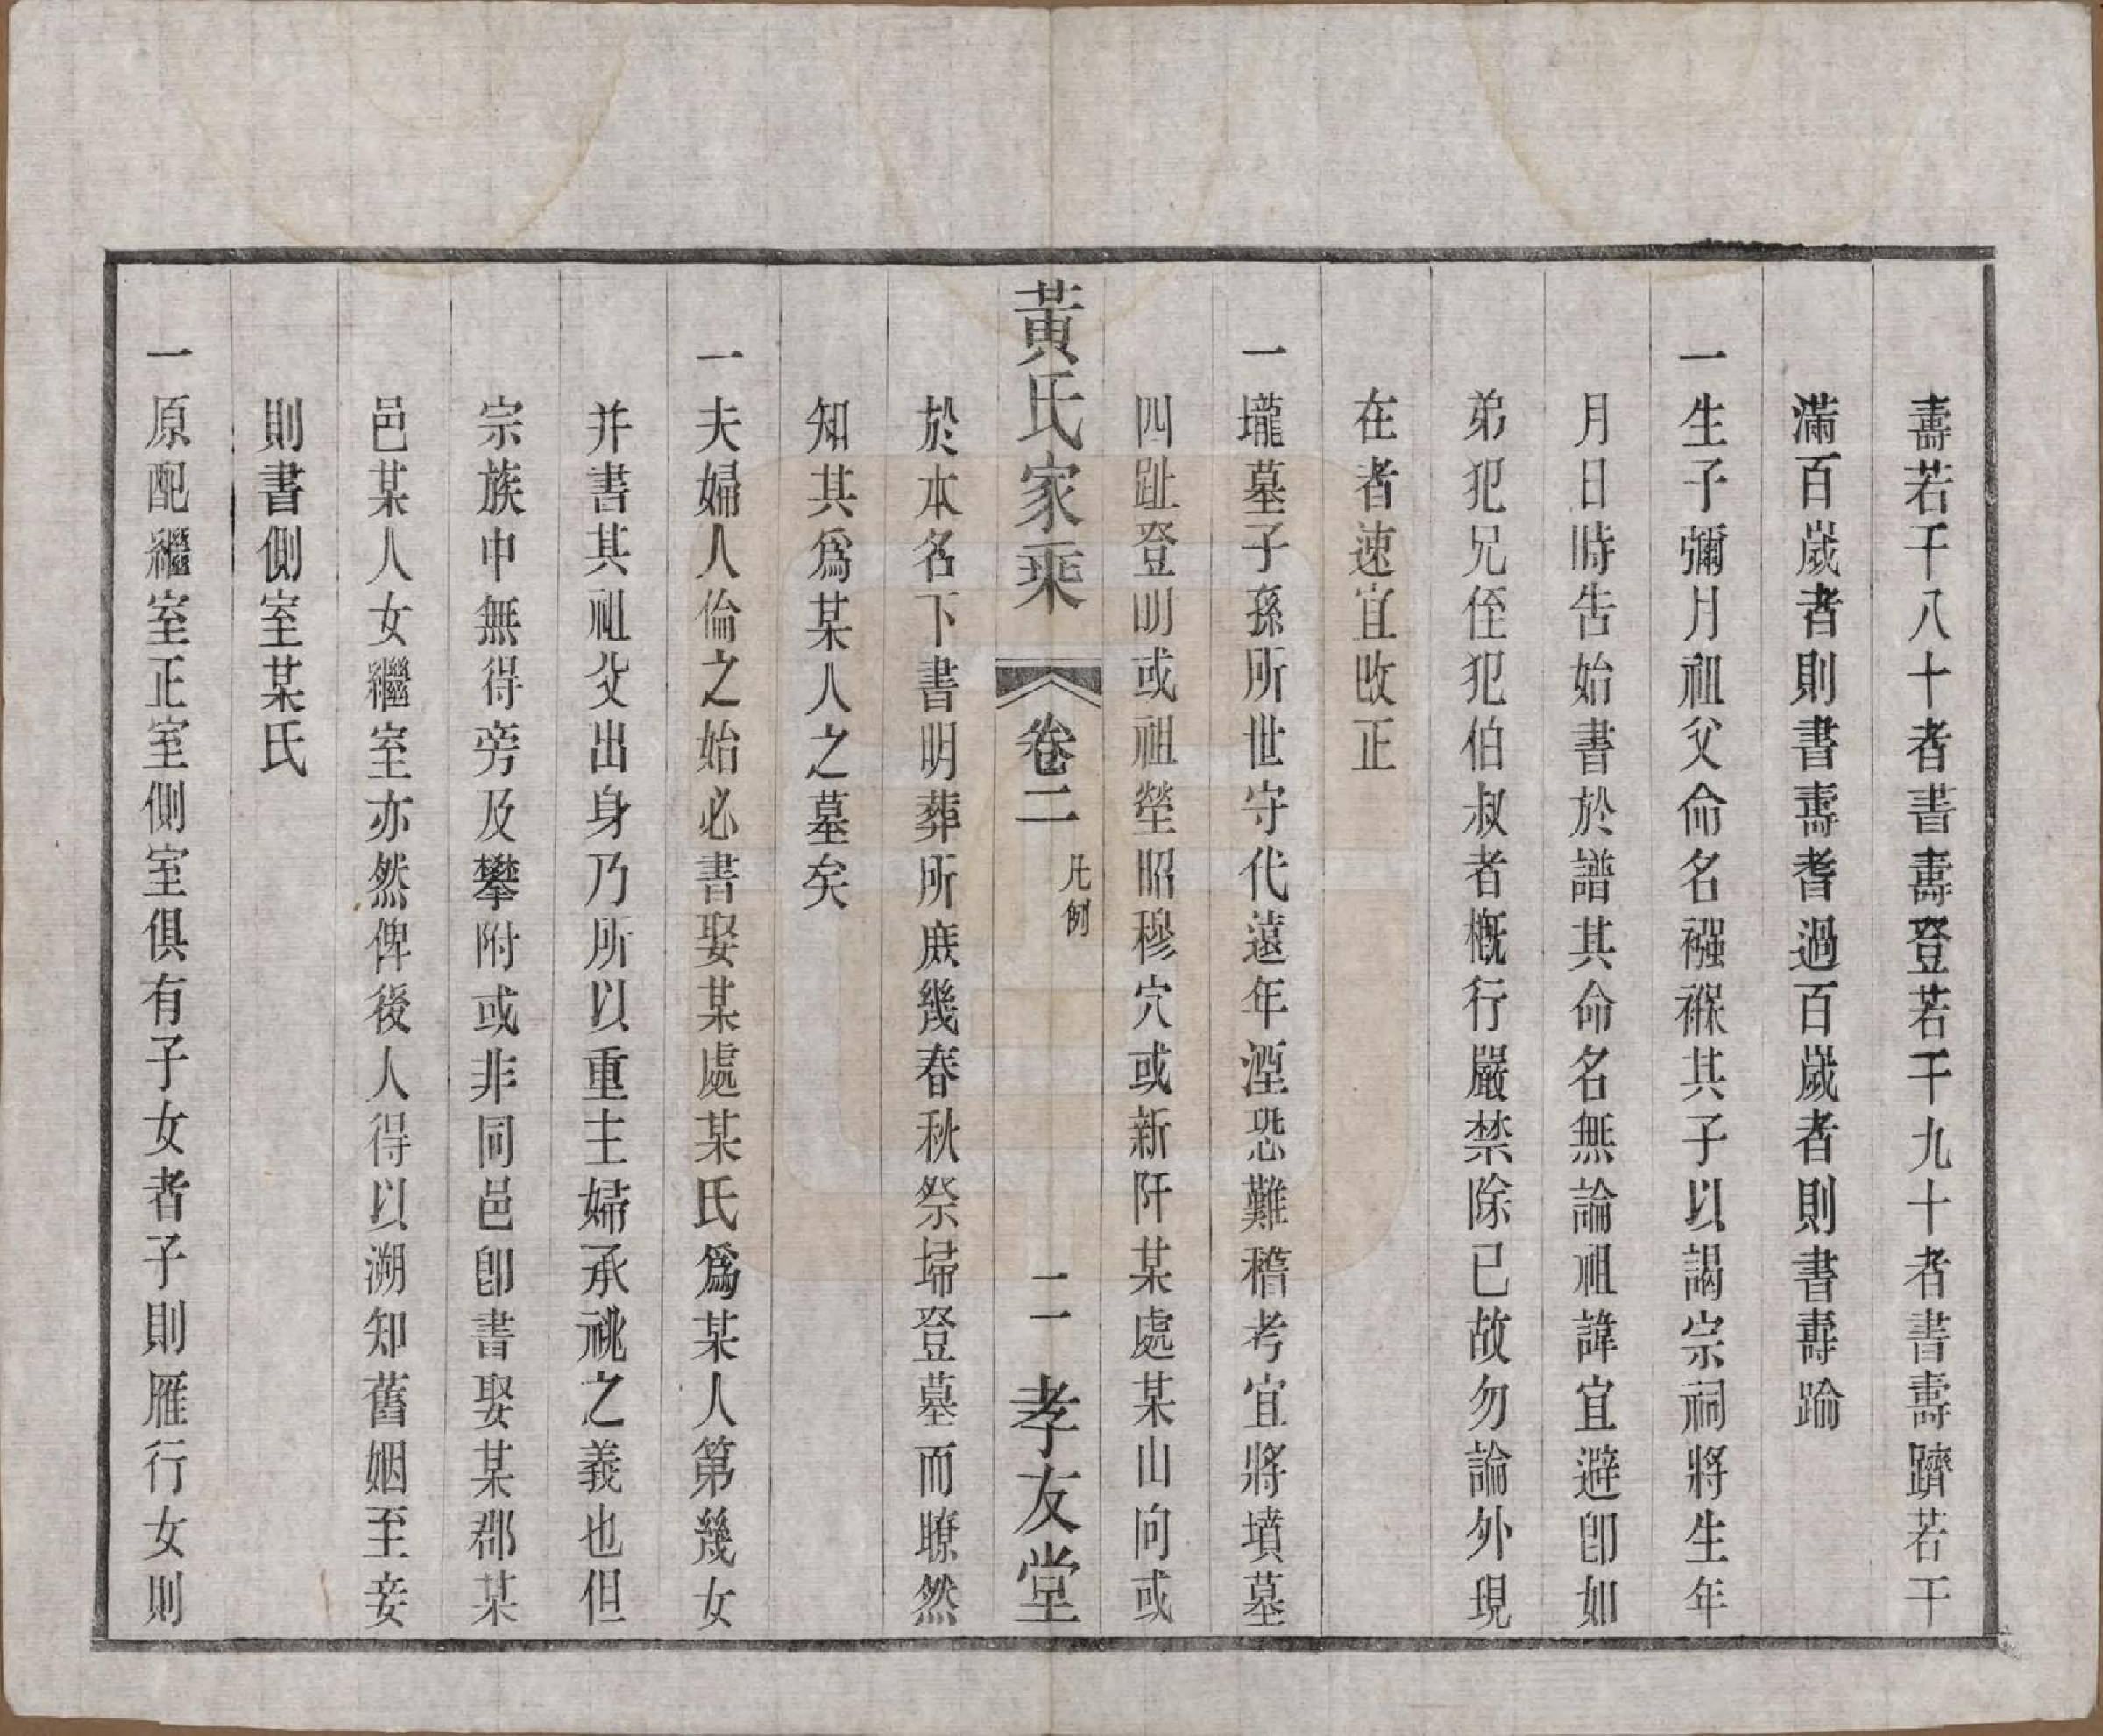 壽若干八十者書壽登若干九十者書壽躋若干
滿百歲者則書壽耆過百歲者則書壽踰
一生子彌月祖父命名襁褓其子以謁宗祠將生年
月日時告始書於譜其命名無論祖諱宜避卽如
弟犯兄侄犯伯叔者槪行嚴禁除已故勿論外現
在者速宜改正
一壠墓子孫所世守代遠年湮恐難稽考宜將墳墓
四趾登明或祖塋昭穆穴或新阡某處某山向或
黃氏家乘 卷二 凡例 二 孝友堂
於本名下書明葬所庶幾春秋祭埽登墓而瞭然
知其爲某人之墓矣
一夫婦人倫之始必書娶某處某氏爲某人第幾女
并書其祖父出身乃所以重主婦承祧之義也但
宗族中無得旁及攀附或非同邑卽書娶某郡某
邑某人女繼室亦然俾後人得以溯知舊姻至妾
則書側室某氏
一原配繼室正室側室俱有子女者子則雁行女則